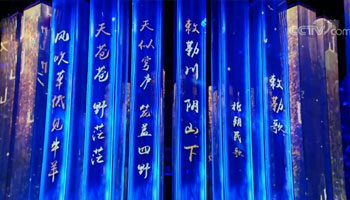 敕勒歌
北朝民歌
敕勒川 阴山下
天似穹庐 笼盖四野
天苍苍 野茫茫
风吹草低见牛羊
CCTV.com